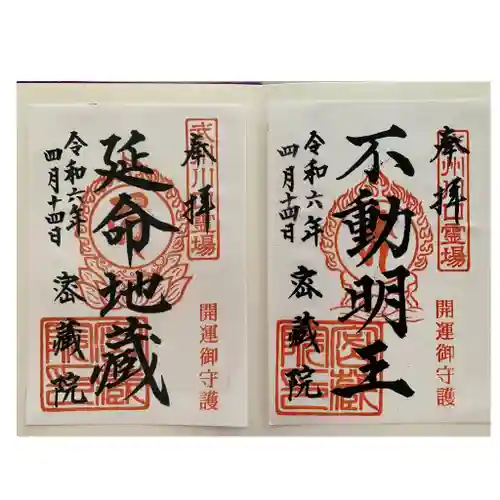 奉拝
不動明王
令和六年
四月十四日
密蔵院
開運御守護
奉拝
延命地蔵
令和六年
四月十四日
密蔵院
開運御守護